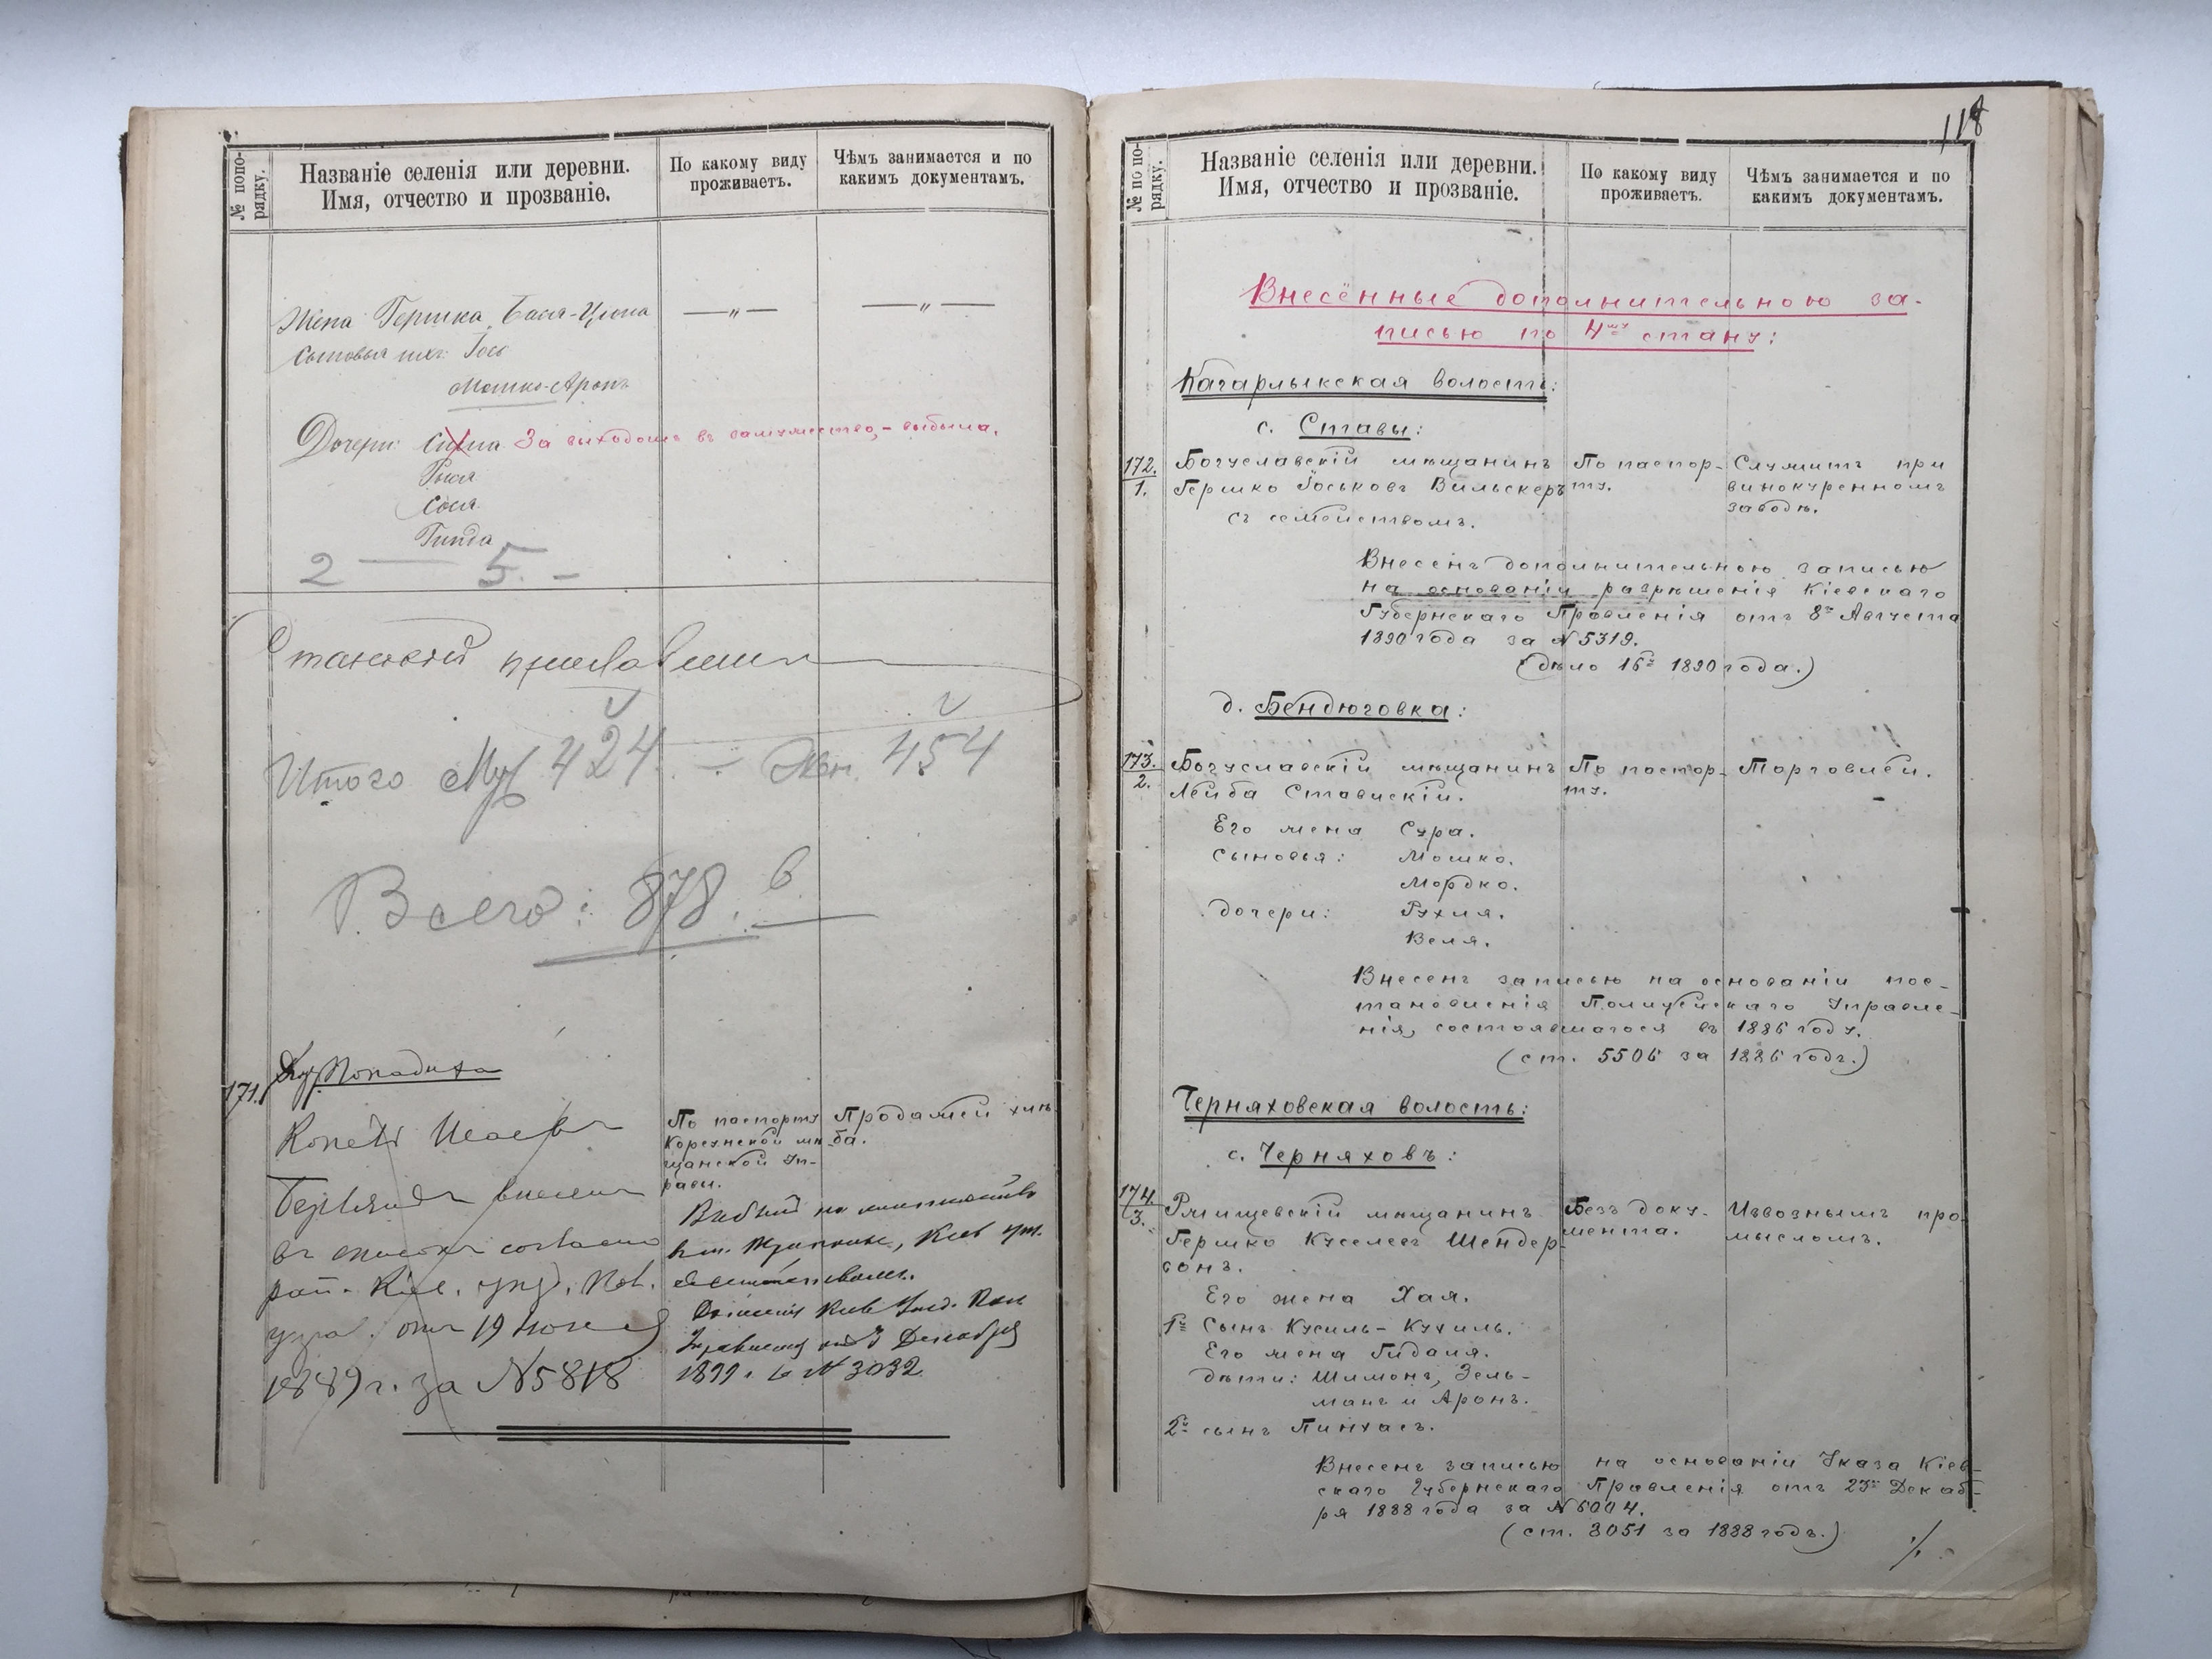 № попо-
рядку.
Названіе селенія или деревни.
Имя, отчество и прозваніе.
По какому виду
проживаетъ.
Чѣмъ занимается и по
какимъ документамъ.
Жена Гершка Бася-Ципа — „ — — „ —
Сыновья ихъ: Іось
Мошко-Аронъ
Дочери: Сима За выходомъ въ замужество, – выбыла.
Рыся
Сося
Гинда
2 — 5. –
Становой приставъ
Итого Муж 424 – Жен. 454
Всего: 878.
Дер. Попадиха
171.
По паспорту
Корсунской мѣ-
щанской Уп-
равы.
Продажей хлѣ-
ба.
внесенъ
въ списокъ согласно
рап. Кіев. уѣзд. Пол.
управ. отъ 19
1889 г. за № 5818
Выбылъ на жительство
Кіев. уѣз.
Кіев. Уѣзд. Пол.
Управленія отъ 3 Декабря
1899 г. за № 3032
118
№ по по-
рядку.
Названіе селенія или деревни.
Имя, отчество и прозваніе.
По какому виду
проживаетъ.
Чѣмъ занимается и по
какимъ документамъ.
Внесённые дополнительною за-
писью по 4му стану:
Кагарлыкская волость:
с. Ставы:
172.
1.
Богуславскій мѣщанинъ
Гершко Іоськовъ Вильскеръ
съ семействомъ.
По паспор-
ту.
Служитъ при
винокуренномъ
заводѣ.
Внесенъ дополнительною записью
на основаніи разрѣшенія Кіевскаго
Губернскаго Правленія отъ 8го Августа
1890 года за № 5319.
(дѣло 16е 1890 года.)
д. Бендюговка:
173.
2.
Богуславскій мѣщанинъ
Лейба Ставискій.
По паспор-
ту.
Торговлей.
Его жена Сура.
Сыновья: Мошко.
Мордко.
дочери: Рухля.
Веля.
Внесенъ записью на основаніи пос-
тановленія Полицейскаго Управле-
нія, состоявшагося въ 1886 году.
(ст. 5506 за 1886 годъ.)
Черняховская волость:
с. Черняховъ:
174.
3.
Ржищевскій мѣщанинъ
Гершко Куселевъ Шендер-
сонъ.
Безъ доку-
мента.
Извознымъ про-
мысломъ.
Его жена Хая.
1й Сынъ Кусиль-Кухиль.
Его жена Гидаля.
дѣти: Шимонъ, Зель-
манъ и Аронъ.
2й сынъ Пинхасъ.
Внесенъ записью на основаніи Указа Кіев-
скаго Губернскаго Правленія отъ 23го Декаб-
ря 1888 года за № 6004.
(ст. 8051 за 1888 годъ.)